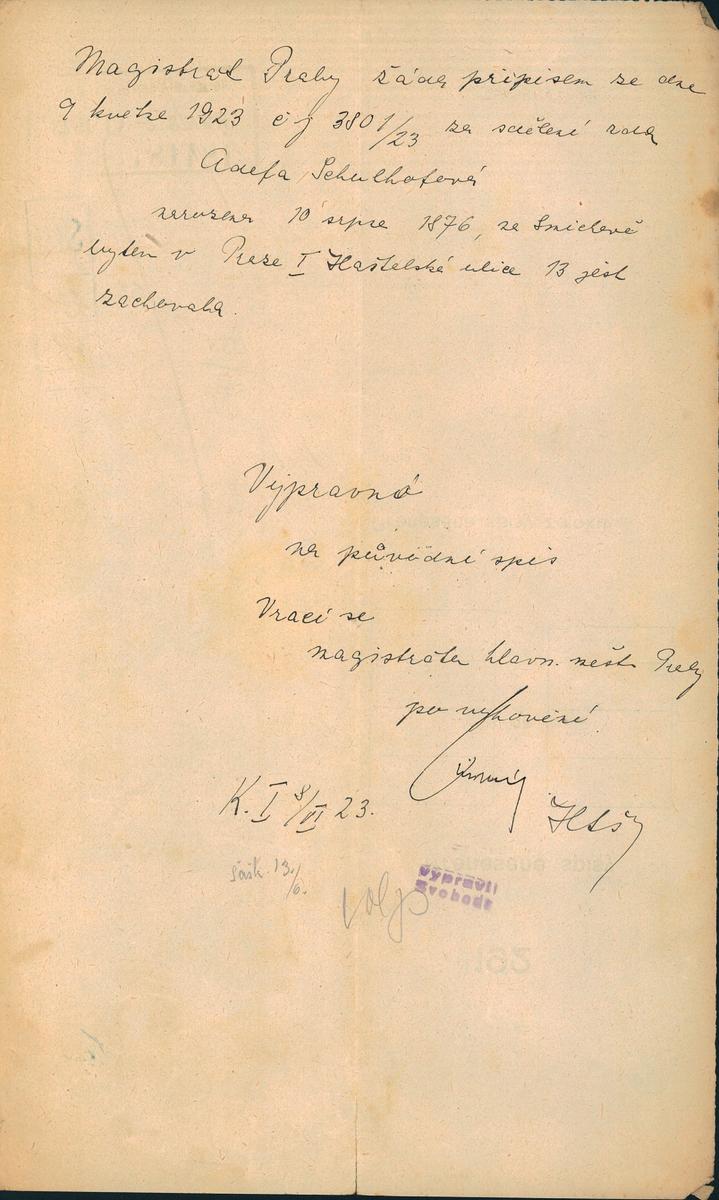 Magistrat Prahy žáda přípisem ze dne
9 květne 1923 č j 3801/23 za sdělení zda
Adefa Schulhofová
narozena 10 srpna 1876, na Smíchově
bytem v Praze I Haštalská ulice 13 jest
zachovalá.
Výpravna
na původní spis
Vrací se
magistrátu hlavn. město Prahy
po vyhovění
K. I 8/VI 23.
13/6.
vypravil
Svoboda